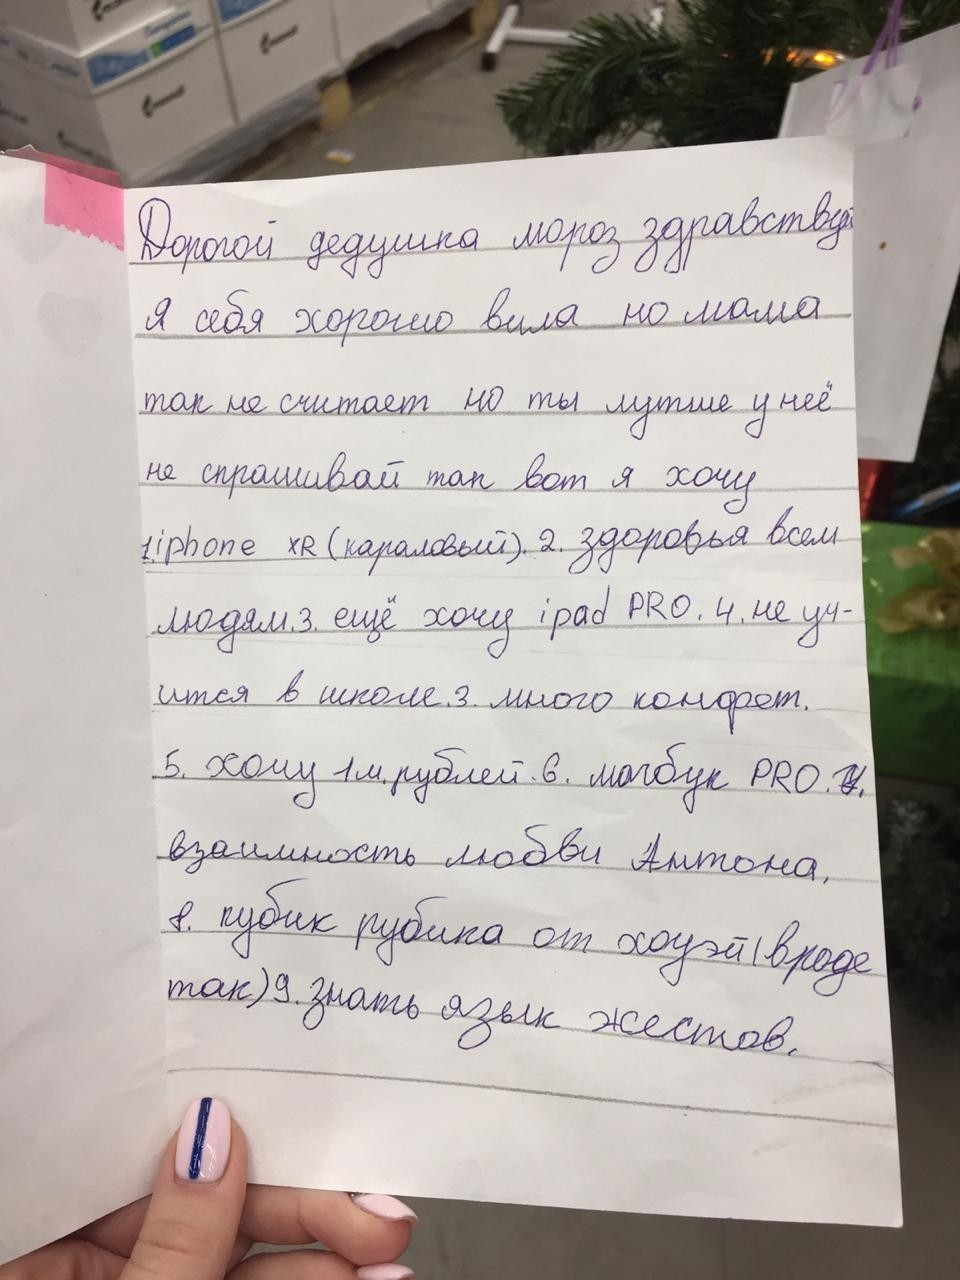 Дорогой дедушка мороз здравствуй
Я себя хорошо вила но мама
так не считает но ты лутше у неё
не спрашивай так вот я хочу
1.iphone XR (караловый). 2. здоровья всем
людям.3. ещё хочу ipad PRO. 4. не уч-
ится в школе.3. много конфет.
5. хочу 1м.рублей.6. магбук PRO.7.
взаимность любви Антона.
8. кубик рубика от хоуэй(вроде
так)9.знать язык жестов.